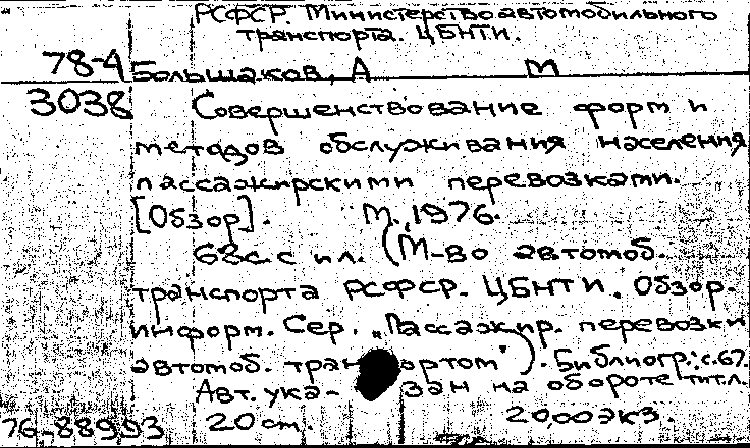 РСФСР. Министерство автомобильного
транспорта. ЦБНТИ.
78-4
Большаков, А М
3038
Совершенствование форм и
методов обслуживания населения
пассажирскими перевозками.
[Обзор]. М., 1976.
68 с. с ил. (М-во автомоб.
транспорта РСФСР. ЦБНТИ. Обзор.
информ. Сер. „Пассажир. перевозки
автомоб. транспортом"). Библиогр.: с. 67.
Авт. указан на обороте тит. л.
76-88993 20 см. 20,00 экз.